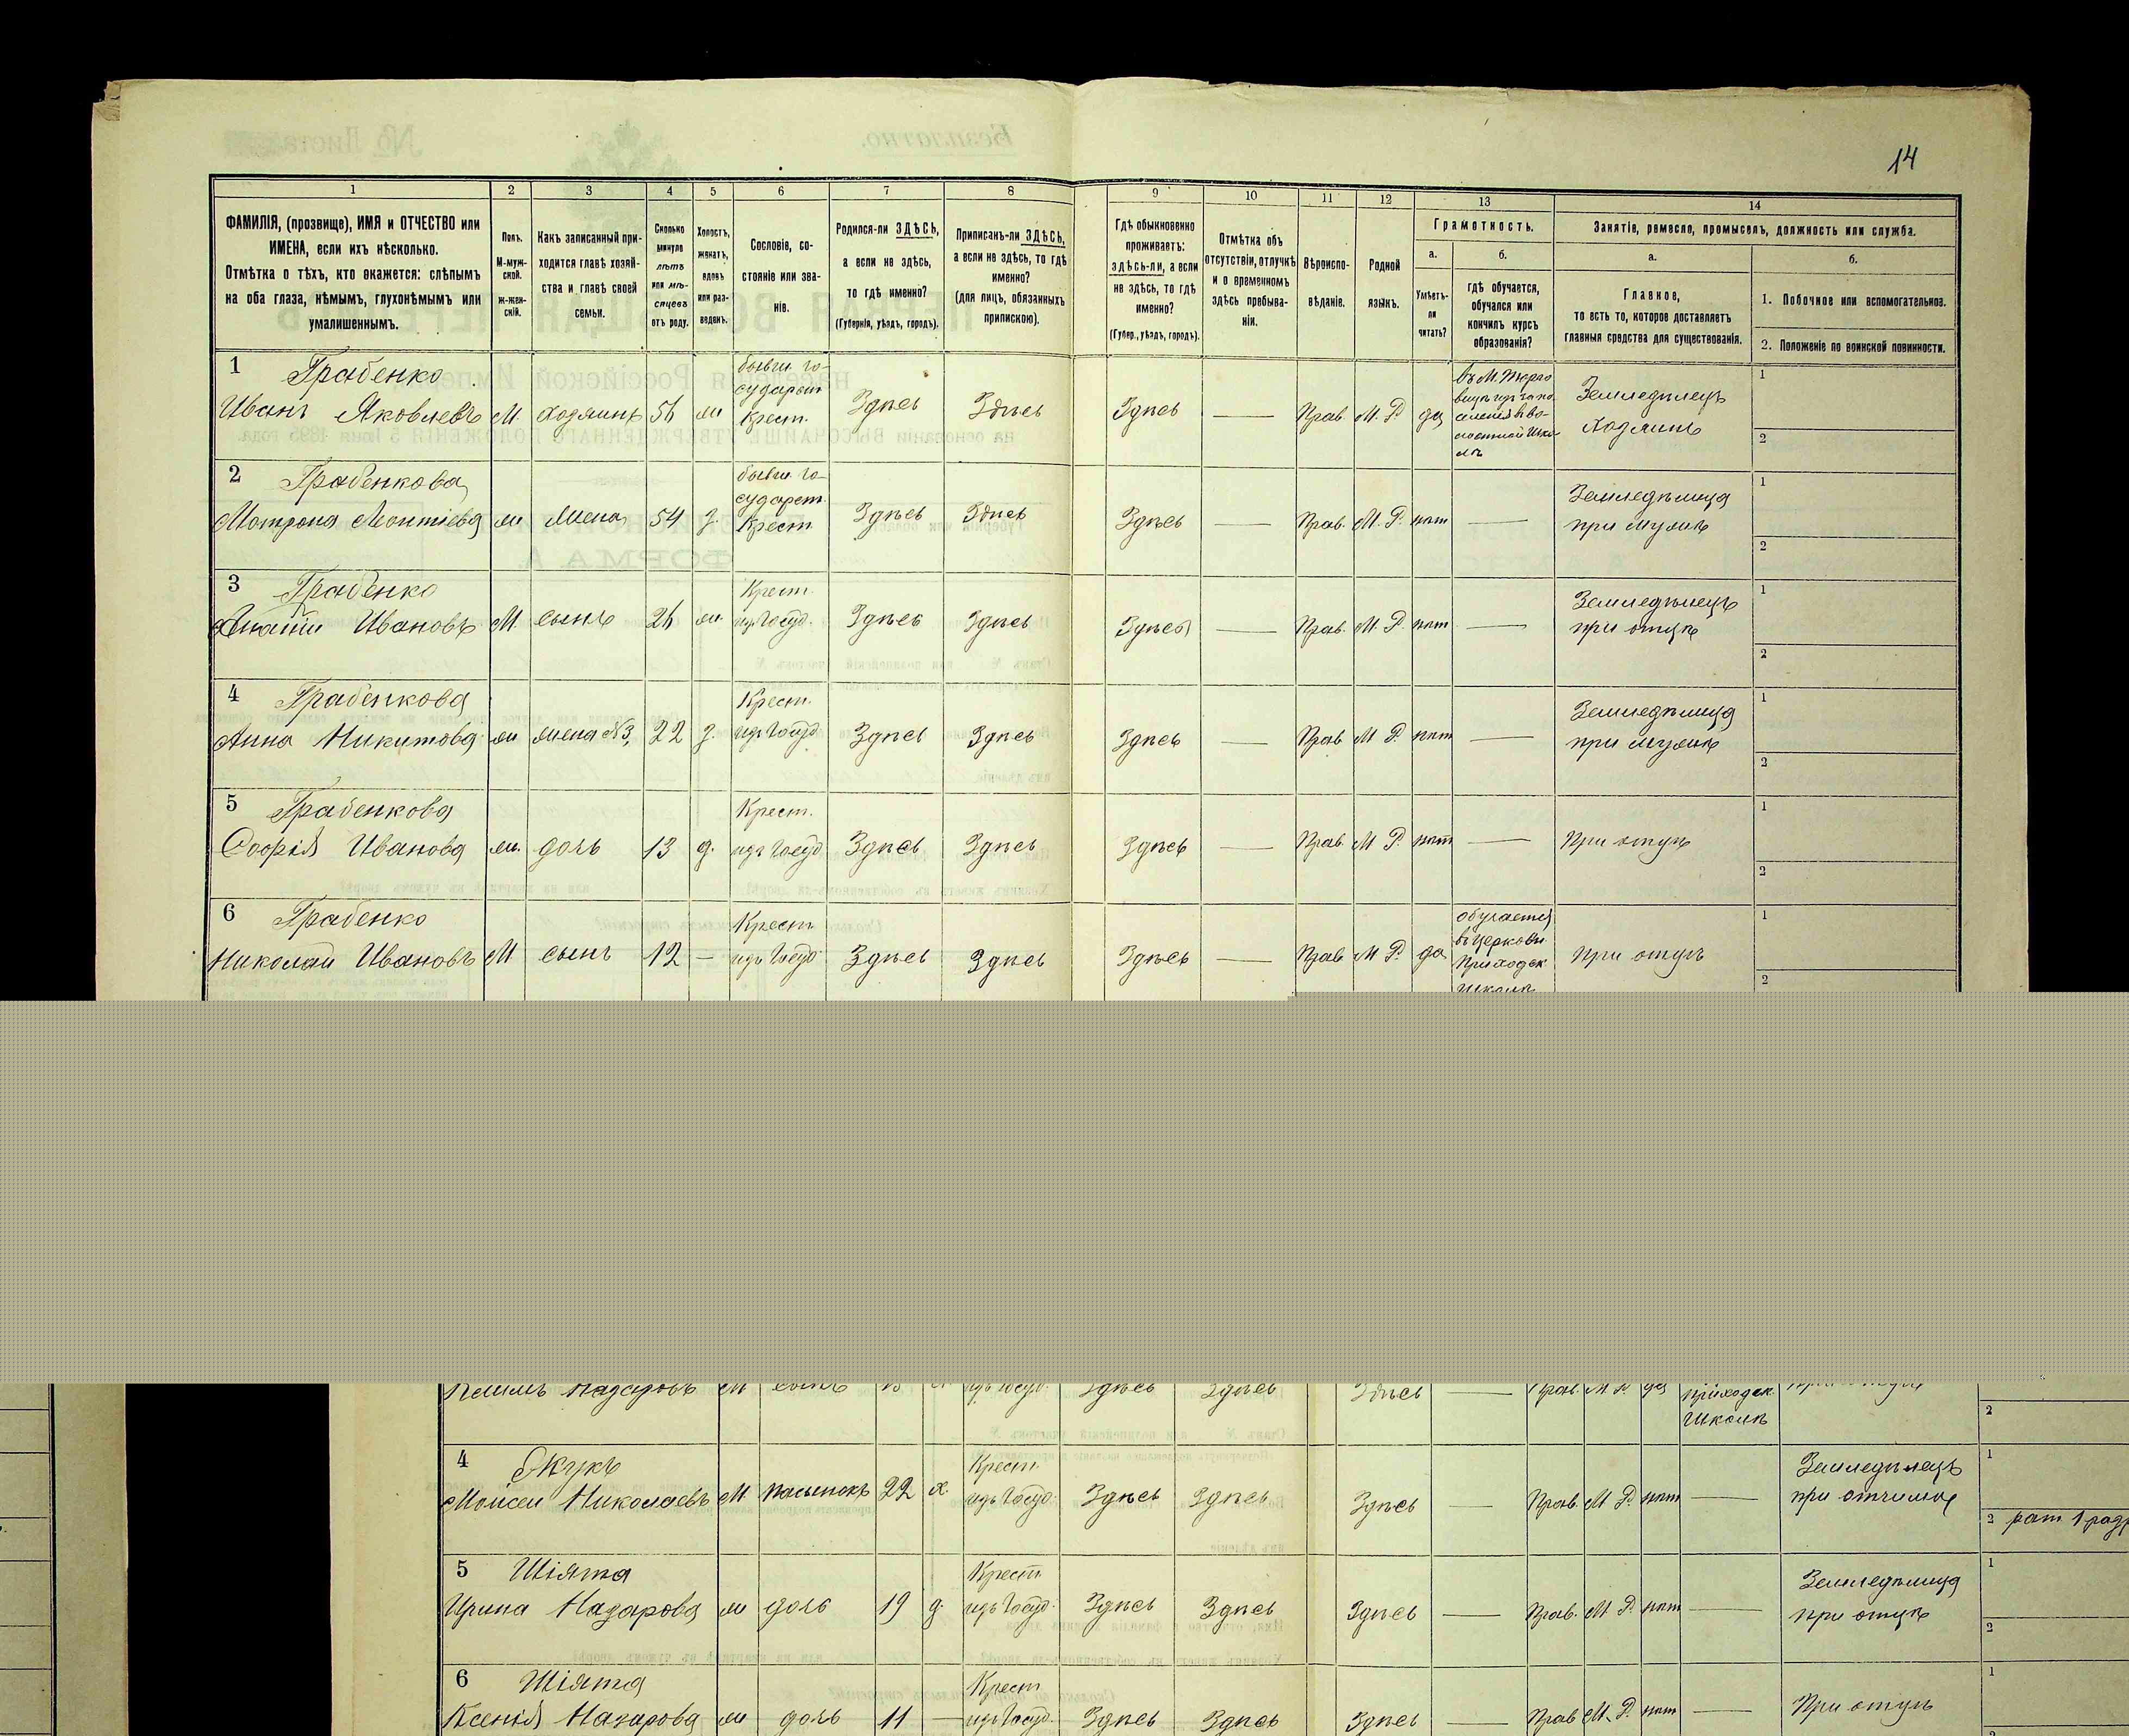 14
1 2 3 4 5 6 7 8 9 10 11 12 13 14
ФАМИЛІЯ, (прозвище), ИМЯ и ОТЧЕСТВО или
ИМЕНА, если ихъ нѣсколько.
Отмѣтка о тѣхъ, кто окажется: слѣпымъ
на оба глаза, нѣмымъ, глухонѣмымъ или
умалишеннымъ.
Полъ.
М-муж-
ской.
ж-жен-
скій.
Какъ записанный при-
ходится главѣ хозяй-
ства и главѣ своей
семьи.
Сколько
минуло
лѣтъ
или мѣ-
сяцевъ
отъ роду.
Холостъ,
женатъ,
вдовъ
или раз-
веденъ.
Сословіе, со-
стояніе или зва-
ніе.
Родился-ли ЗДѢСЬ,
а если не здѣсь,
то гдѣ именно?
(Губернія, уѣздъ, городъ).
Приписанъ-ли ЗДѢСЬ,
а если не здѣсь, то гдѣ
именно?
(для лицъ, обязанныхъ
припискою).
Гдѣ обыкновенно
проживаетъ:
здѣсь-ли, а если
не здѣсь, то гдѣ
именно?
(Губер., уѣздъ, городъ).
Отмѣтка объ
отсутствіи, отлучкѣ
и о временномъ
здѣсь пребыва-
ніи.
Вѣроиспо-
вѣданіе.
Родной
языкъ.
Грамотность.
а.
Умѣетъ-
ли
читать?
б.
гдѣ обучается,
обучался или
кончилъ курсъ
образованія?
Занятіе, ремесло, промыселъ, должность или служба.
а.
Главное,
то есть то, которое доставляетъ
главныя средства для существованія.
б.
1. Побочное или вспомогательное.
2. Положеніе по воинской повинности.
1 Грабенко бывш. го- 1
сударст Земледѣлецъ
Иванъ Яковлевъ М хозяинъ ж Крест. Здѣсь Здѣсь Здѣсь — Прав. М. Р. да Хозяинъ 2
2 Грабенкова бывш. го- 1
сударст. Земледѣлица
Матрона Леонтіева ж жена 54 з. Крест Здѣсь Здѣсь Здѣсь — Прав. М. Р. нѣт — при мужѣ 2
3 Грабенко Крест. Земледѣлецъ 1
Ананій Ивановъ М сынъ ж. изъ Госуд. Здѣсь Здѣсь Здѣсь — Прав. М Р. нѣт — при отцѣ 2
4 Грабенкова Крест. Земледѣлица 1
Анна Никитова ж жена №3, 22 з. изъ Госуд Здѣсь Здѣсь Здѣсь — Прав М Р. нѣт — при мужѣ 2
5 Грабенкова Крест. 1
Софія Иванова ж. дочь 13 д. изъ Госуд Здѣсь Здѣсь Здѣсь — Прав. М Р. нѣт — При отцѣ 2
6 Грабенко Крест обучается 1
Николай Ивановъ М сынъ 12 — изъ Госуд Здѣсь Здѣсь Здѣсь — Прав М Р. да въ Церковн Приходск школѣ при отцѣ 2
Назаровъ М сынъ изъ Госуд. Здѣсь Здѣсь Здѣсь — Прав. М Р. да приходск 2
школѣ
4 Жукъ Крест. Земледѣлецъ 1
Моисей Николаевъ М пасынокъ 22 х. изъ Госуд. Здѣсь Здѣсь Здѣсь — Прав. М Р. нѣт — при отчимѣ
2 рат 1 разр
5 Шіята Крест Земледѣлица 1
Ирина Назарова ж дочь 19 д. изъ Госуд. Здѣсь Здѣсь Здѣсь — Прав. М Р. нѣт — при отцѣ 2
6 Шіята Крест 1
Ксенія Назарова ж дочь 11 — изъ Госуд. Здѣсь Здѣсь Здѣсь — Прав М. Р. нѣт — При отцѣ
2